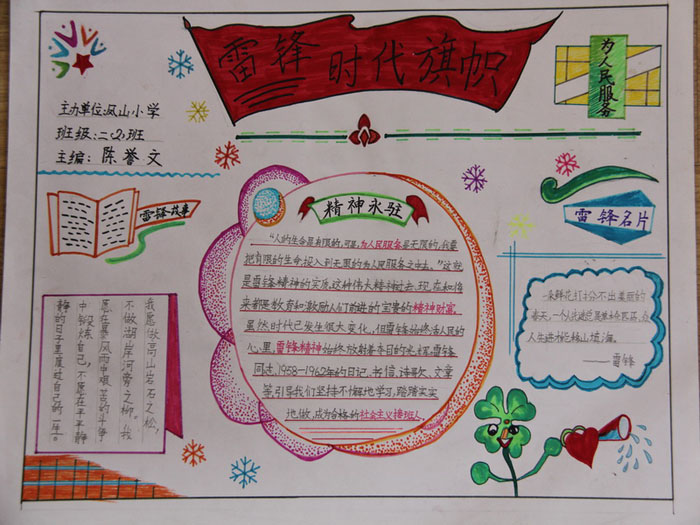 雷锋时代旗帜
为人民服务
主办单位:凤山小学
班级:二(2)班
主编:陈誉文
雷锋故事
精神永驻
雷锋名片
"人的生命是有限的,可是,为人民服务是无限的,我要
把有限的生命投入到无限的为人民服务之中去。"这就
是雷锋精神的实质,这种伟大精神过去、现在和将
来都是教育和激励人们前进的宝贵的精神财富。
虽然时代已发生很大变化,但雷锋始终活人民的
心里,雷锋精神始终放射着夺目的光辉,雷锋
同志1958—1962年的日记、书信、诗歌、文章
等,引导我们坚持不懈地学习,踏踏实实
地做,成为合格的社会主义接班人。
一朵鲜花打扮不出美丽的
春天,一个人先进总是单枪匹马,众
人先进才能移山填海。
——雷锋
我愿做高山岩石之松,
不做湖岸河旁之柳。我
愿在暴风雨中艰苦的斗争
中锻炼自己,不愿在平平静
静的日子里度过自己的一生。